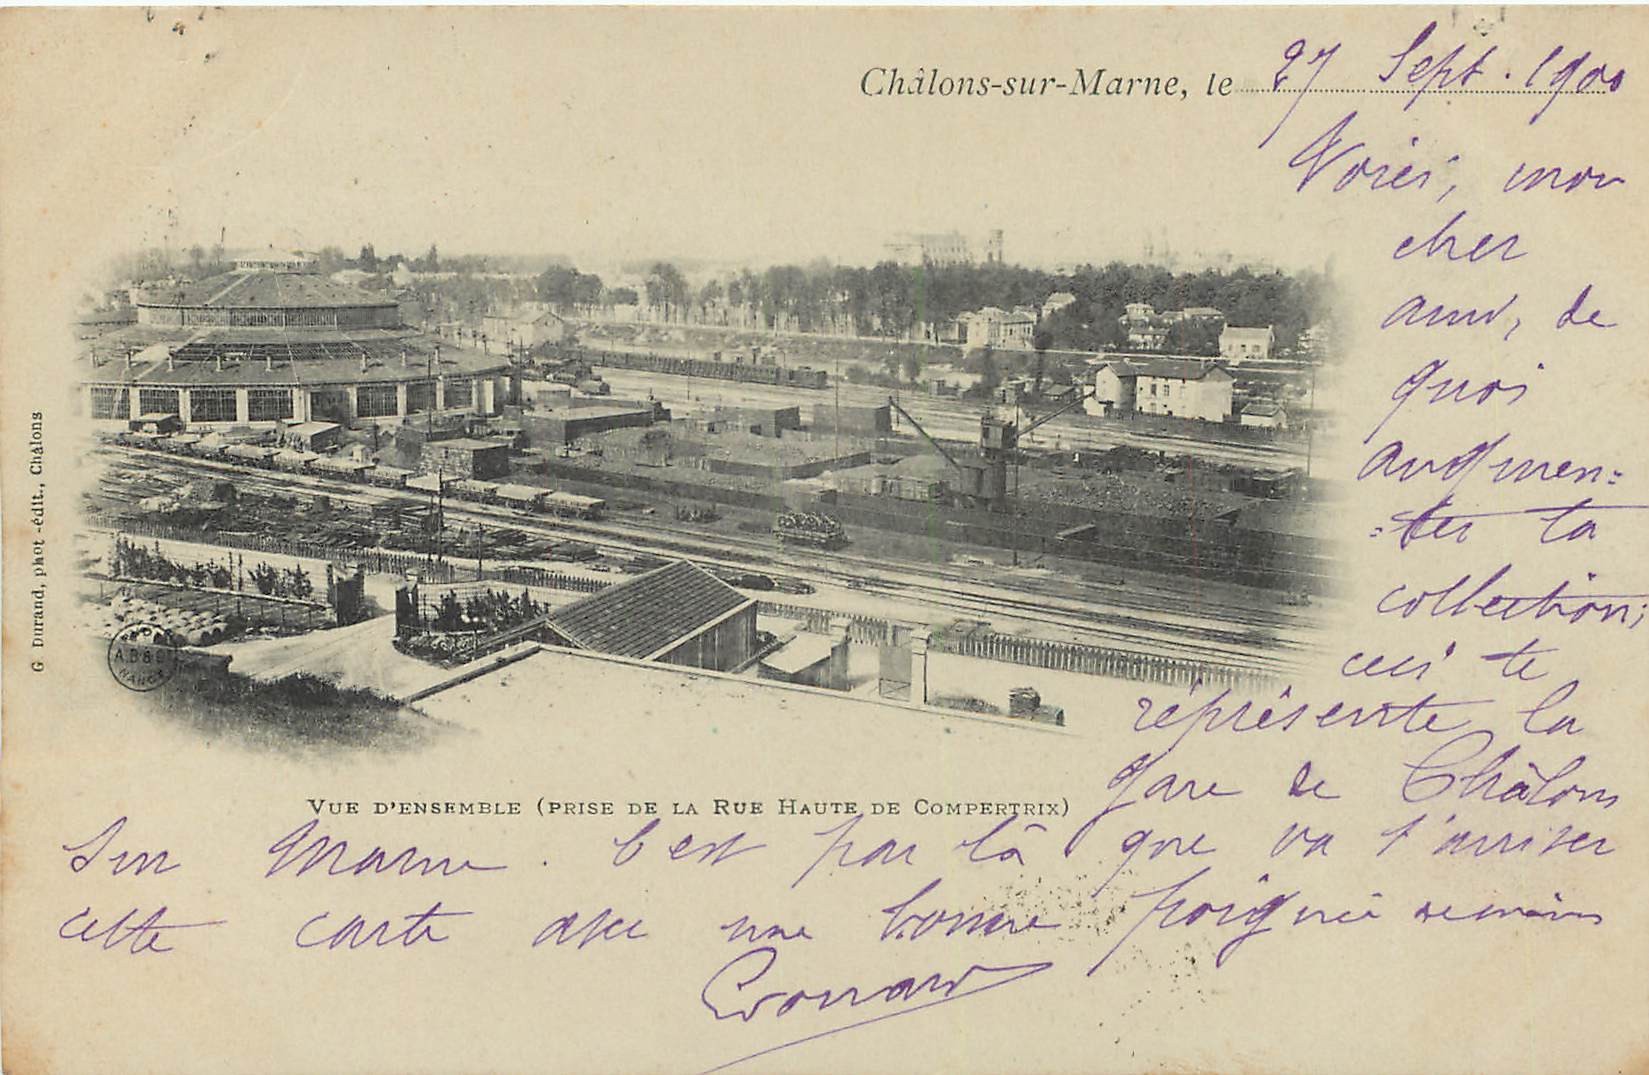 Châlons-sur-Marne, le 27 Sept. 1900
Voici, mon
cher
ami, de
quoi
augmen=
=ter ta
collection;
ceci te
réprésente la
gare de Châlons
VUE D'ENSEMBLE (PRISE DE LA RUE HAUTE DE COMPERTRIX)
Sur Marne. C'est par là que va t'arriver
cette carte avec une bonne poignée de mains
Edouard
G. Durand, phot.-édit., Châlons
A.B & C
NANCY